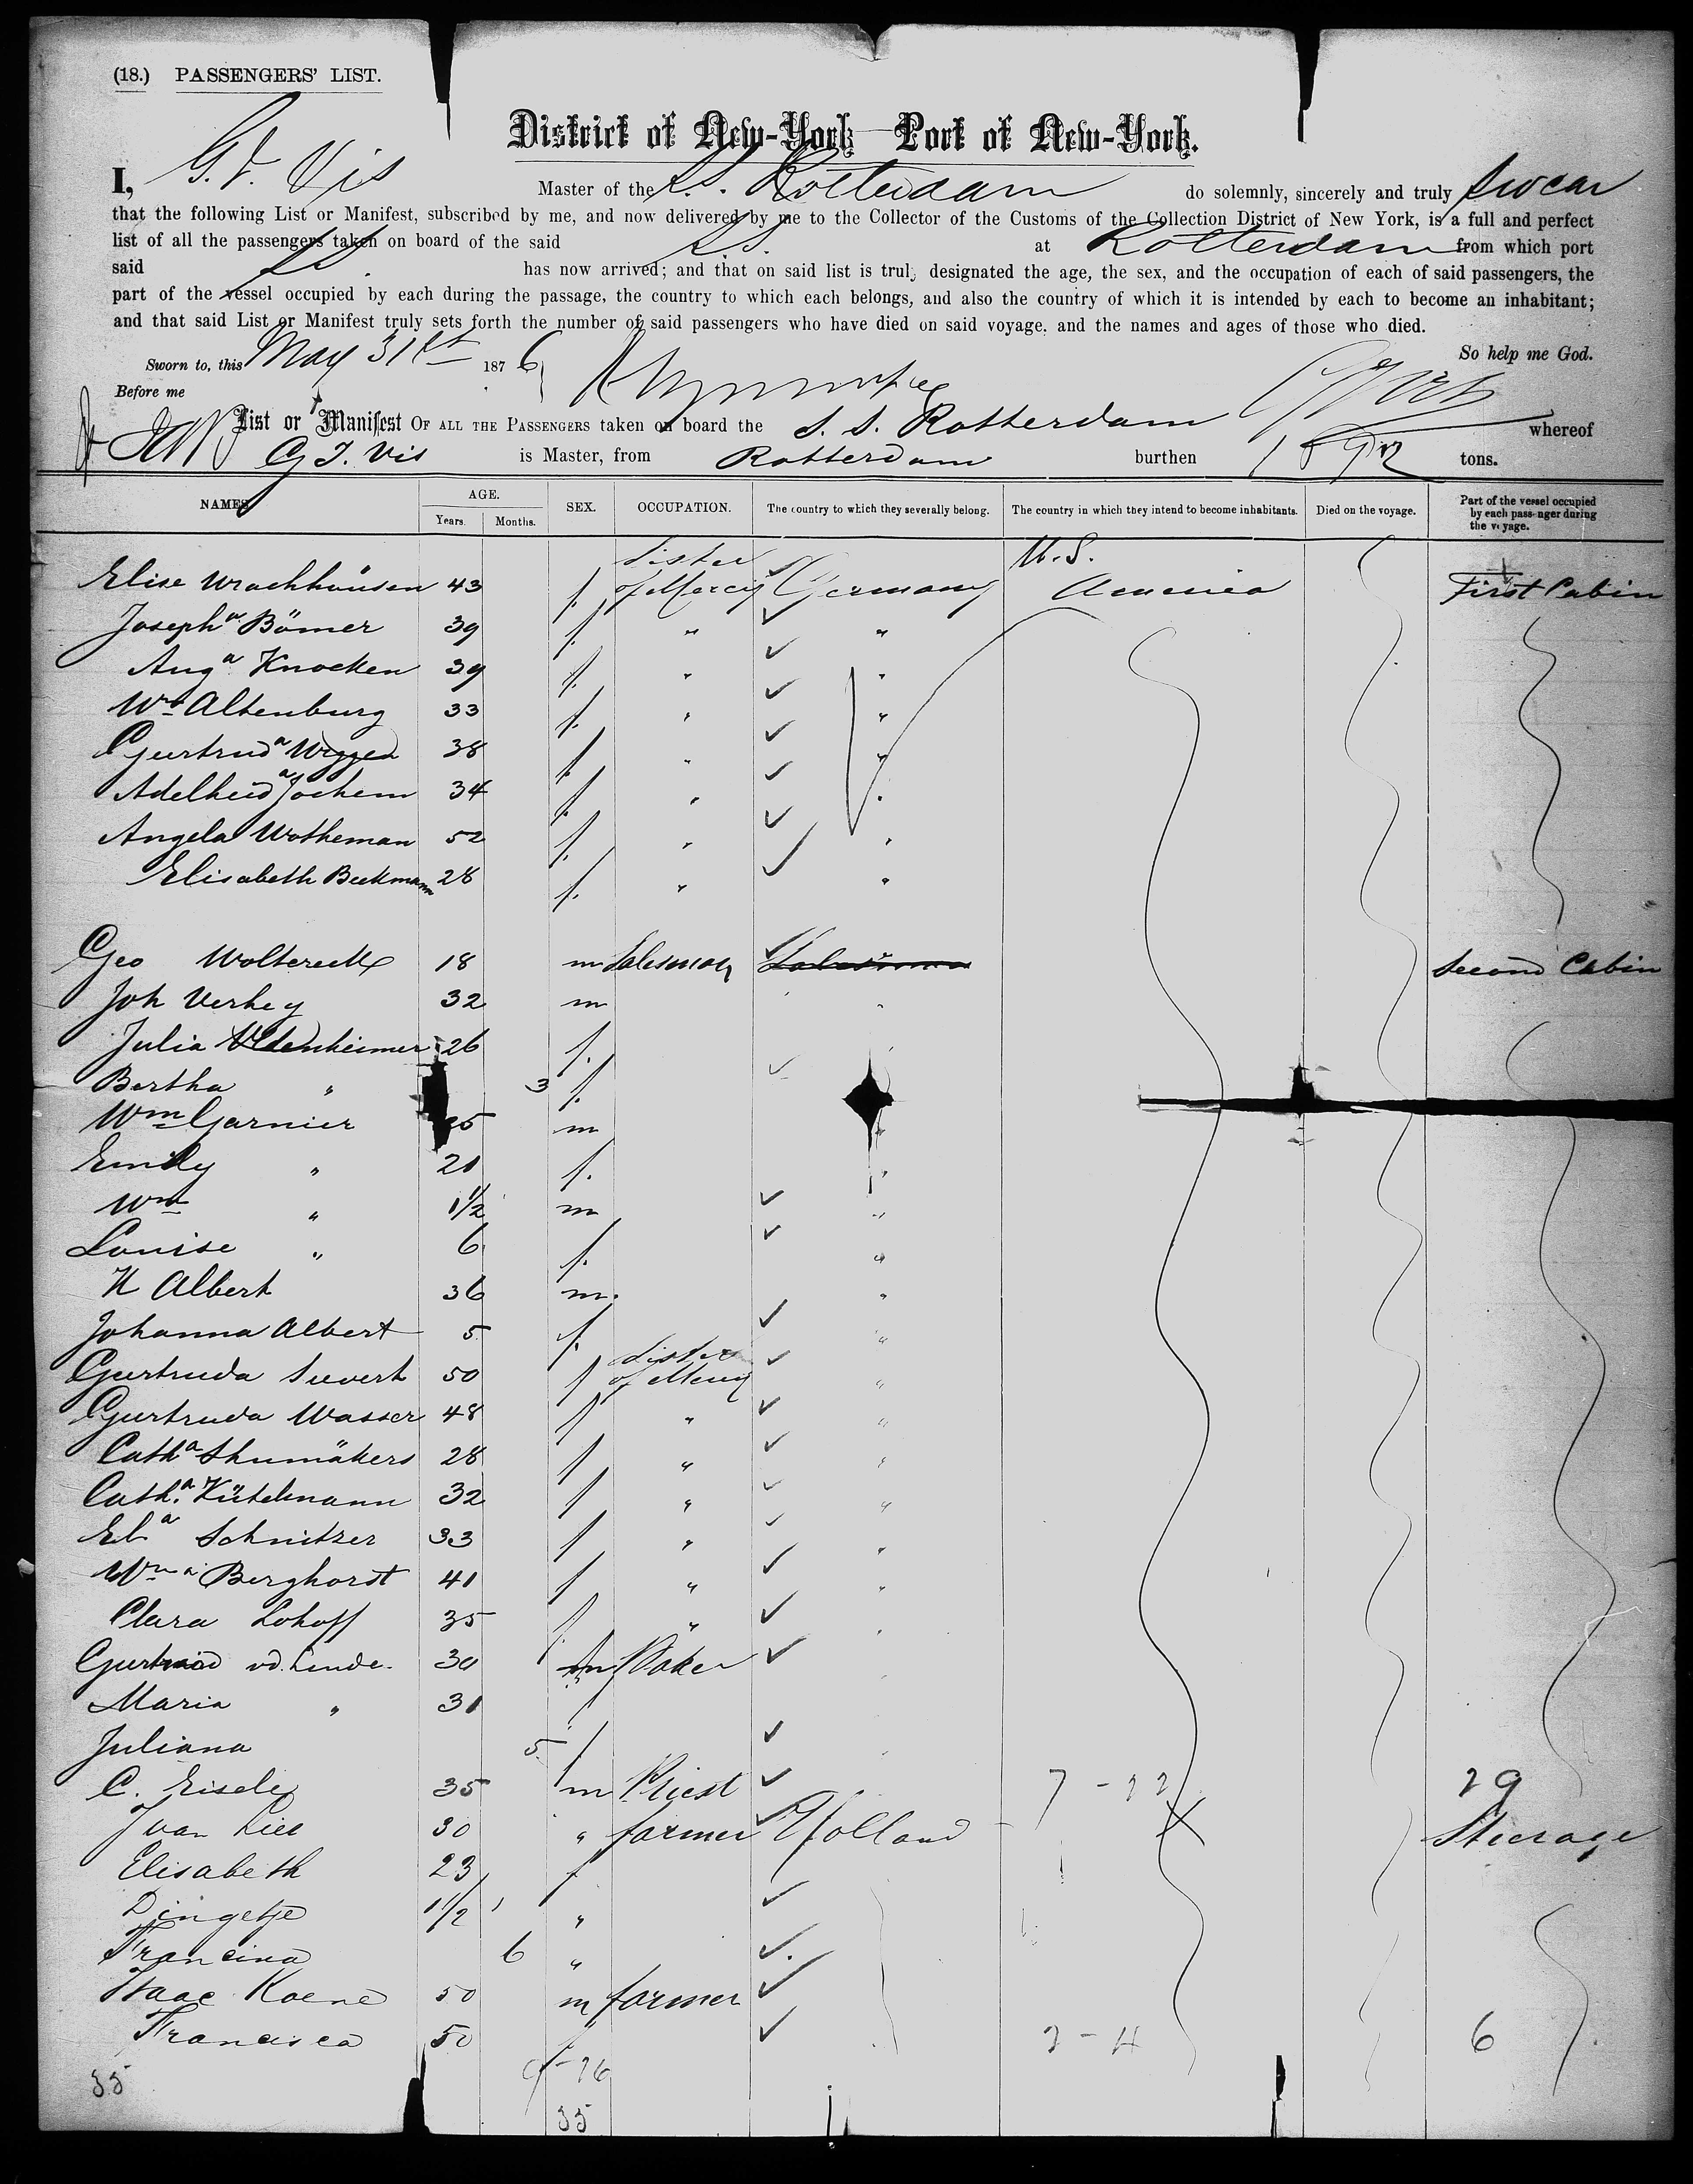 (18.) PASSENGERS' LIST.
District of New-York Port of New-York.
I, G. J. Vis Master of the S.S. Rotterdam do solemnly, sincerely and truly swear
that the following List or Manifest, subscribed by me, and now delivered by me to the Collector of the Customs of the Collection District of New York, is a full and perfect
list of all the passengers taken on board of the said S.S. at Rotterdam from which port
said S.S. has now arrived; and that on said list is truly designated the age, the sex, and the occupation of each of said passengers, the
part of the vessel occupied by each during the passage, the country to which each belongs, and also the country of which it is intended by each to become an inhabitant;
and that said List or Manifest truly sets forth the number of said passengers who have died on said voyage, and the names and ages of those who died.
Sworn to, this May 31st 1876 So help me God.
Before me
List or Manifest OF ALL THE PASSENGERS taken on board the S. S. Rotterdam whereof
G J. Vis is Master, from Rotterdam burthen tons.
NAMES AGE. Years. Months. SEX. OCCUPATION. The country to which they severally belong. The country in which they intend to become inhabitants. Died on the voyage. Part of the vessel occupied by each passenger during the voyage.
Elise Wrachhausen 43 f. Sister of Mercy Germany U.S. America First Cabin
Joseph a Bömer 39 f. " "
Aug a Knocken 39 f. " "
Wm Altenburg 33 f. " "
Geertrud a 38 f. " "
Adelheid a Jochem 34 f. " "
Angela Wotheman 52 f. " "
Elisabeth Beekmann 28 f. " "
Geo Woltereck 18 m Salesman Salesman Second Cabin
Joh Verhey 32 m "
Julia 26 f.
Bertha " 3 f.
Wm Garnier 25 m "
Emily " 21 f. "
Wm " 1 1/2 m "
Louise " 6 f. "
H Albert 36 m. "
Johanna Albert 5 f. "
Geertruda Sievert 50 f Sister of Mercy "
Geertruda Wasser 48 f " "
Cath a Shumäkers 28 f " "
Cath. a Kütelmann 32 f " "
El a Schnitzer 33 f " "
Wm a Berghorst 41 f " "
Clara Lohoff 35 f. " "
vd. Linde. 30 m Baker
Maria " 31 f
Juliana 5. f
C. Eisele 35 m Priest 7 - 22 29
30 " farmer Holland Steerage
Elisabeth 23 f
Dingetje 1 1/2 "
Francina 6 "
Isaac Koene 50 m farmer
Francisca 50 f 2 - 4 6
9 - 26
35 35